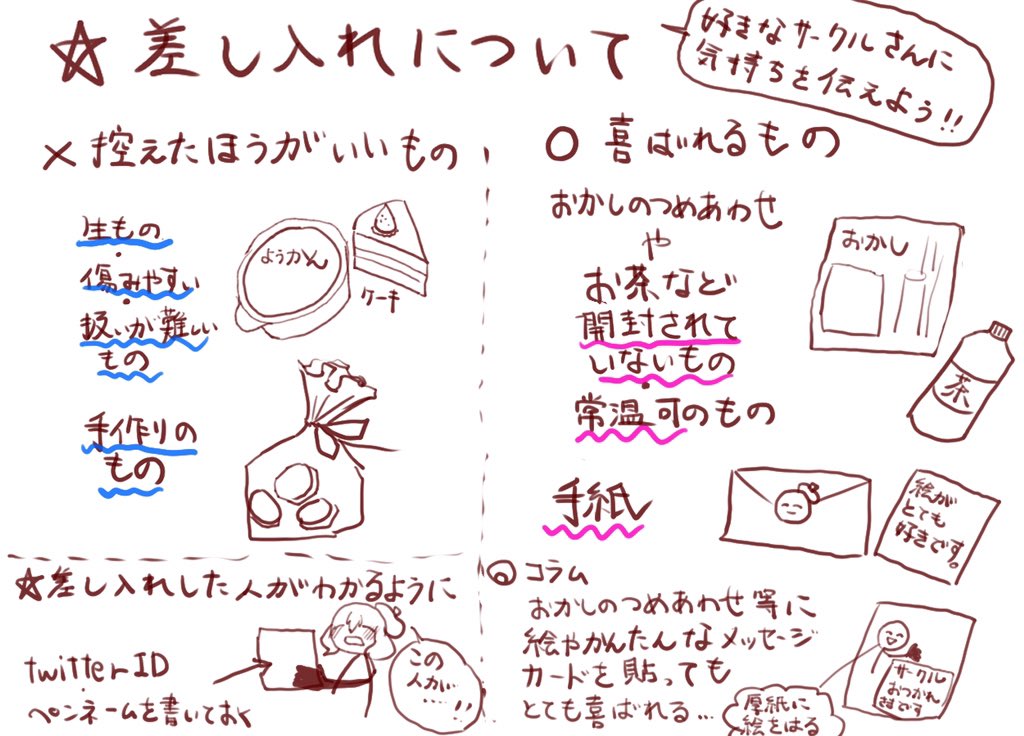 ☆差し入れについて
好きなサークルさんに
気持ちを伝えよう!!
×控えたほうがいいもの
生もの
・
傷みやすい
・
扱いが難しい
もの
手作りの
もの
ようかん
ケーキ
○喜ばれるもの
おかしのつめあわせ
や
お茶など
開封されて
いないもの
・
常温可のもの
手紙
おかし
茶
絵が
とても
好きです。
☆差し入れした人がわかるように
twitterID
・
ペンネームを書いておく
この
人が…
…!!
◎コラム
おかしのつめあわせ等に
絵やかんたんなメッセージ
カードを貼っても
とても喜ばれる…
サークル
おつかれ
さまです
厚紙に
絵をはる